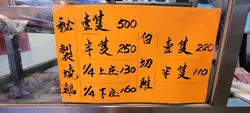 秘製燒鵝
壹隻 500
半隻 250
1/4上庄 130
1/4下庄 160
白切雞
壹隻 220
半隻 110